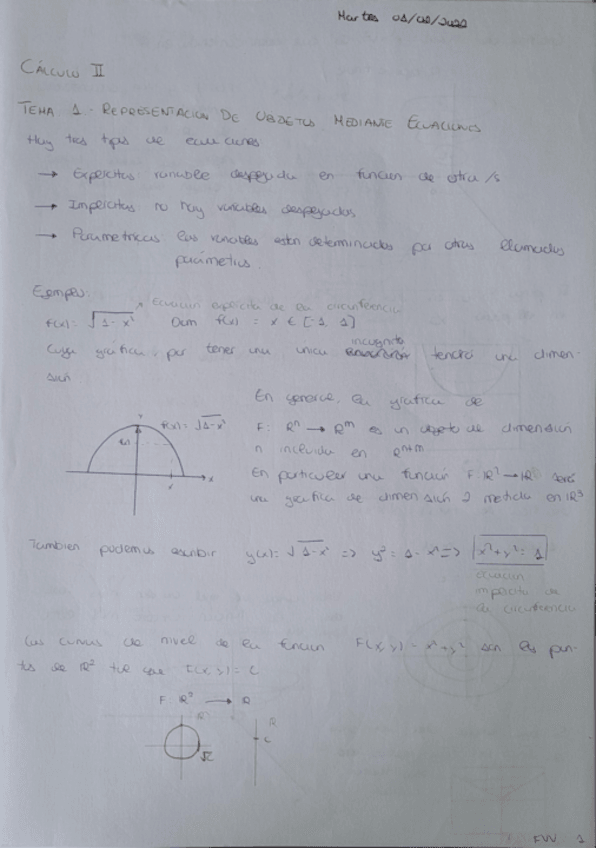 Martes 01/02/2022
CÁLCULO II
TEMA 1 - REPRESENTACION DE OBJETOS MEDIANTE ECUACIONES
Hay tres tipos de ecuaciones
→ Explicitas variable despejada en funcion de otra/s
→ Implicitas no hay variables despejadas
→ Parametricas las variables estan determinadas por otras llamadas
parámetros.
Ejemplo:
Ecuacion explicita de la circunferencia
f(x) = √1-x² Dom f(x) = x ∈ [-1, 1]
incognita
Cuya gráfica, por tener una unica tendrá una dimen-
sión.
En general, la grafica de
f(x) = √1-x²
F: Rⁿ → Rᵐ es un objeto de dimension
n incluida en Rⁿ⁺ᵐ
x
En particular una función F: R² → R será
una grafica de dimensión 2 metida en R³
Tambien podemos escribir y(x) = √1-x² => y² = 1-x² => x²+y² = 1
ecuacion
implicita de
la circunferencia
Las curvas de nivel de la funcion F(x,y) = x²+y² son los pun-
tos de R² tal que F(x,y) = C
F R² → R
R² R
C
√C
1